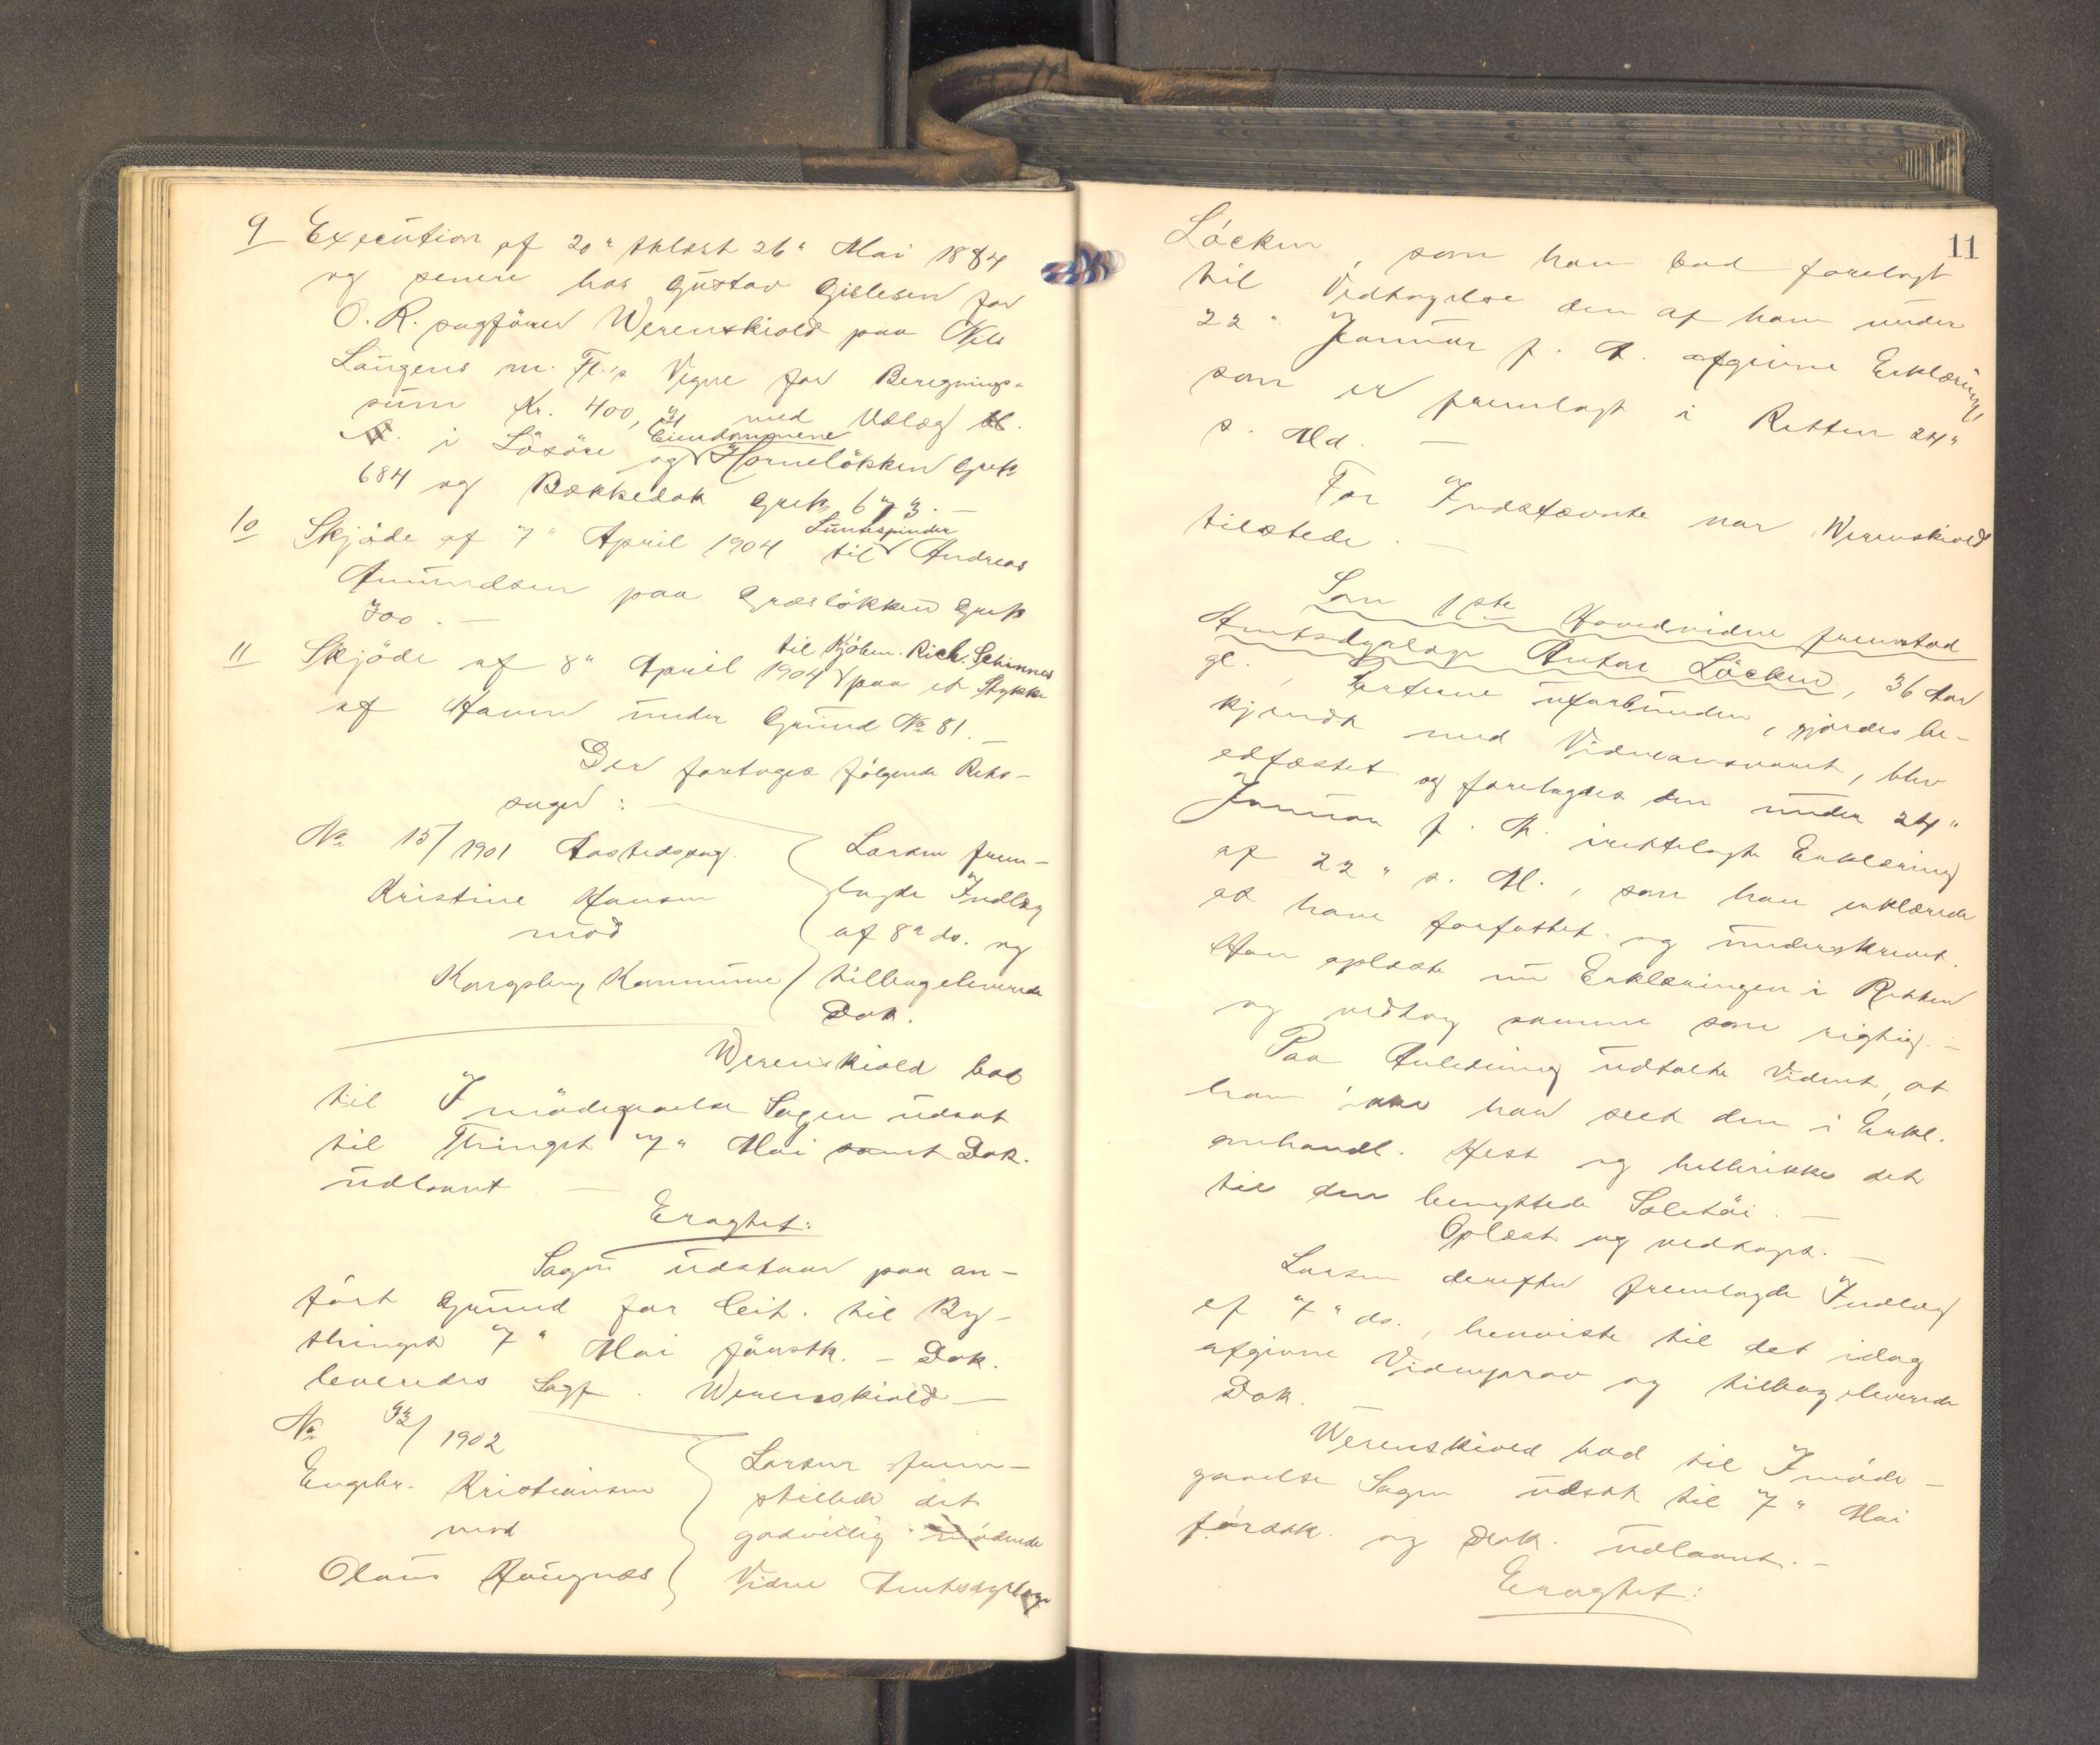 9 Execution af 20" thlæst 26" Mai 1884
og senere hos Gustav Gislesen for
O. R. sagfører Werenskiold paa Nils
Langens m. Fl.'s Vegne for Beregnings-
sum Kr. 400,71 med Udlæg bl.
A. i Løsøre og Eiendommene Horneløkken Grek
684 og Bækkedok Grek 673. —
10 Skjøde af 7" April 1904 til Luntespinder Andreas
Amundsen paa Græsløkken Grek
700. —
11 Skjøde af 8" April 1904 til Kjøbm. Rich. Schinnes paa et Stykke
af Haven under Grund No 81. —
Der foretoges følgende Rets-
sager: —
No 15/1901 Aastedssag.
Kristine Hansen
mod
Kongsberg Kommune
Larsen frem-
lagde Indlæg
af 8" ds. og
tilbageleverede
Dok.
Werenskiold bad
til Imødegaaelse Sagen udsat
til Thinget 7" Mai samt Dok.
udlaant. —
Eragtet:
Sagen udstaar paa an-
ført Grund for Cit. til By-
thinget 7" Mai førstk. — Dok.
leveredes Sagf. Werenskiold —
No 92/1902
Engebr. Kristiansen
mod
Olaus Haugnæs
Larsen frem-
stillede det
godvillig mødende
Vidne Amtsdyrlæge
11
Løcken, som han bad forelagt
til Vedtagelse den af ham under
22" Januar f. A. afgivne Erklæring,
som er fremlagt i Retten 24"
s. Md. —
For Indstævnte var Werenskiold
tilstede. —
Som 1ste Hovedvidne fremstod
Amtsdyrlæge Anton Løcken, 36 Aar
gl., Parterne uforbunden, gjordes be-
kjendt med Vidneansvaret, blev
edfæstet og forelagdes den under 24"
Januar f. A. irettelagte Erklæring
af 22" s. M., som han erklærede
at have forfattet og underskrevet.
Han oplæste nu Erklæringen i Retten
og vedtog samme som rigtig. —
Paa Anledning udtalte Vidnet, at
han ikke har seet den i Erkl.
omhandl. Hest og hellerikke det
til den benyttede Seletøi. —
Oplæst og vedtaget. —
Larsen derefter fremlagde Indlæg
af 7" ds., henviste til det idag
afgivne Vidneprov og tilbageleverede
Dok.
Werenskiold bad til Imøde-
gaaelse Sagen udsat til 7" Mai
førstk. og Dok. udlaant. —
Eragtet: